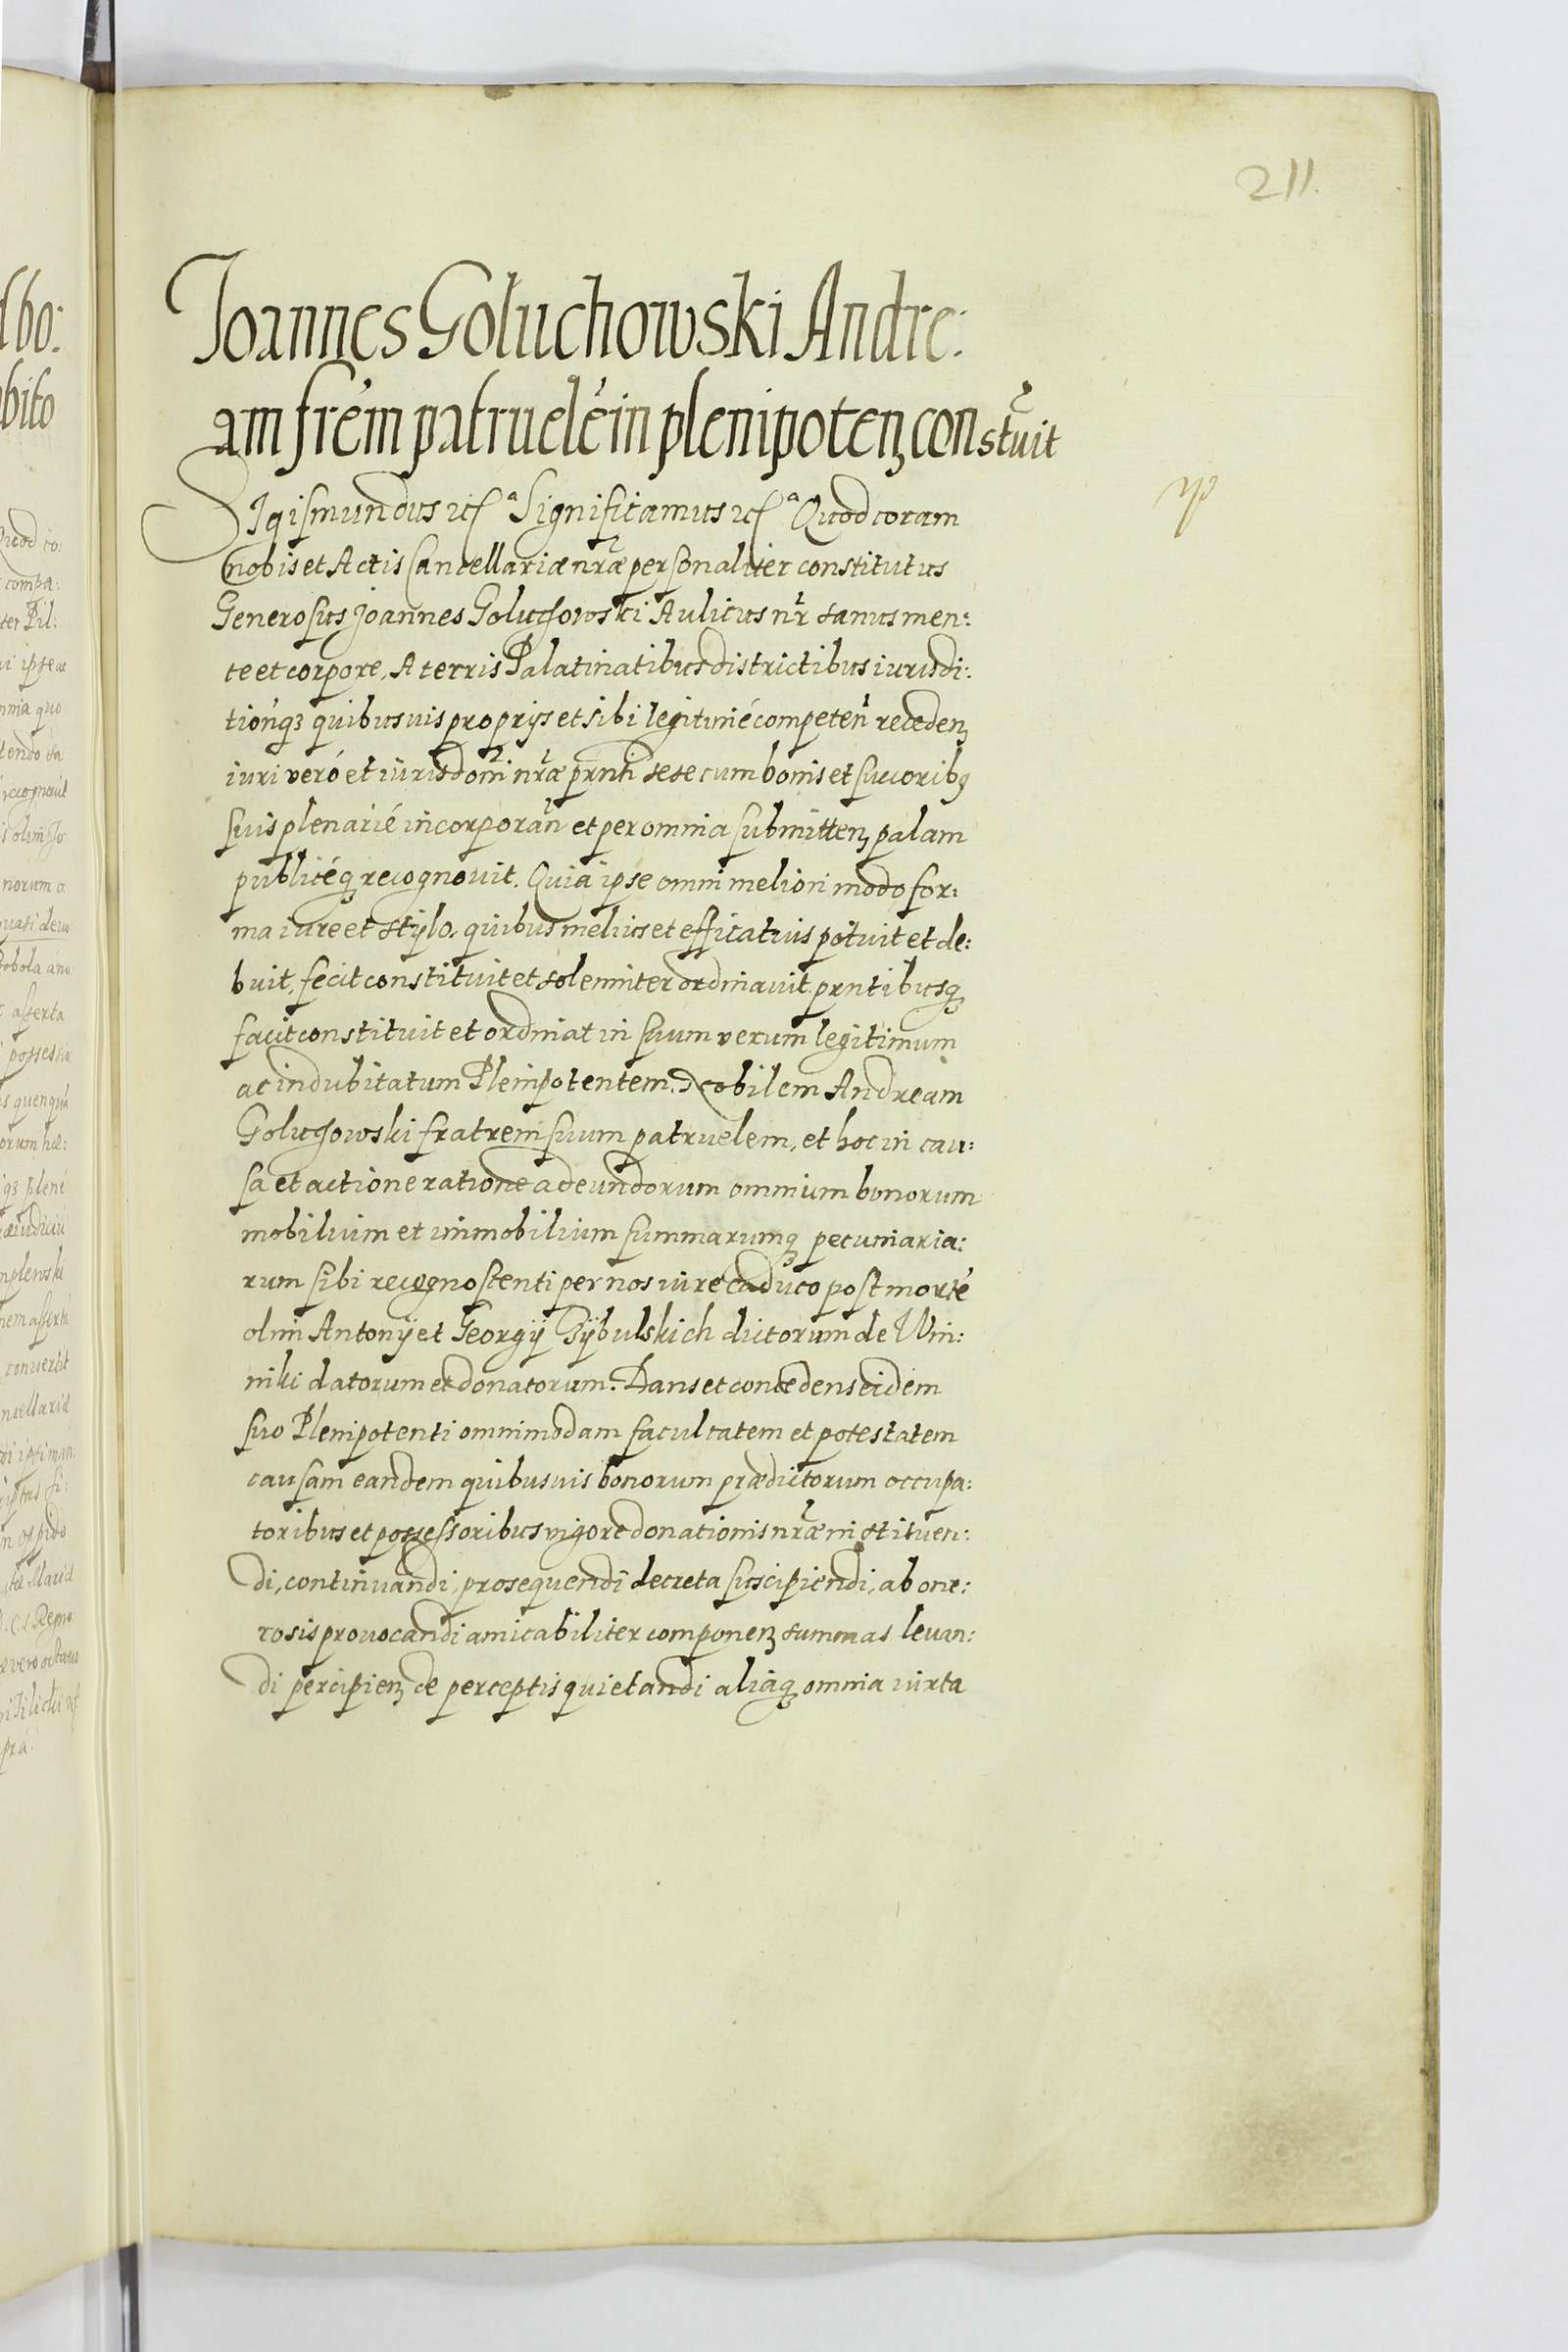 211.
Joannes Goluchowski Andre:
am frem patruelé in plenipoten constuit
Sigismundus etc a Significamus etc a Quod coram
nobis et Actis Cancellariæ nræ personaliter constitutus
Generosus Joannes Goluchowski Aulicus nr sanus men:
te et corpore, A terris Palatinatibus districtibus iurisdi:
tionq3 quibusuis proprys et sibi legitimé competen receden
iuri veró et iurisdoni nræ prnti sese cum bonis et succoribq
suis plenarié incorporan et per omnia submitten palam
publicéq recognouit. Quia ipse omni meliori modo for:
ma iure et stylo, quibus melius et efficatius potuit et de:
buit, fecit constituit et solenniter ordinauit prntibusq
facit constituit et ordinat in suum verum legitimum
ac indubitatum Plenipotentem. Nobilem Andream
Goluchowski fratrem suum patruelem, et hoc in cau:
sa et actione ratione adeundorum omnium bonorum
mobilium et immobilium summarumq pecuniaria:
rum sibi recognoscenti per nos iure caduco post morté
olim Antony et Georgy Cybulskich dictorum de Win:
niki datorum et donatorum. Dans et concedens eidem
suo Plenipotenti omnimodam facultatem et potestatem
causam eandem quibusuis bonorum prædictorum occupa:
toribus et possessoribus vigore donationis nræ instituen:
di, continuandi, prosequendi decreta suscipiendi, ab one:
rosis prouocandi amicabiliter componen summas leuan:
di percipien de perceptis quietandi aliaq omnia iuxta